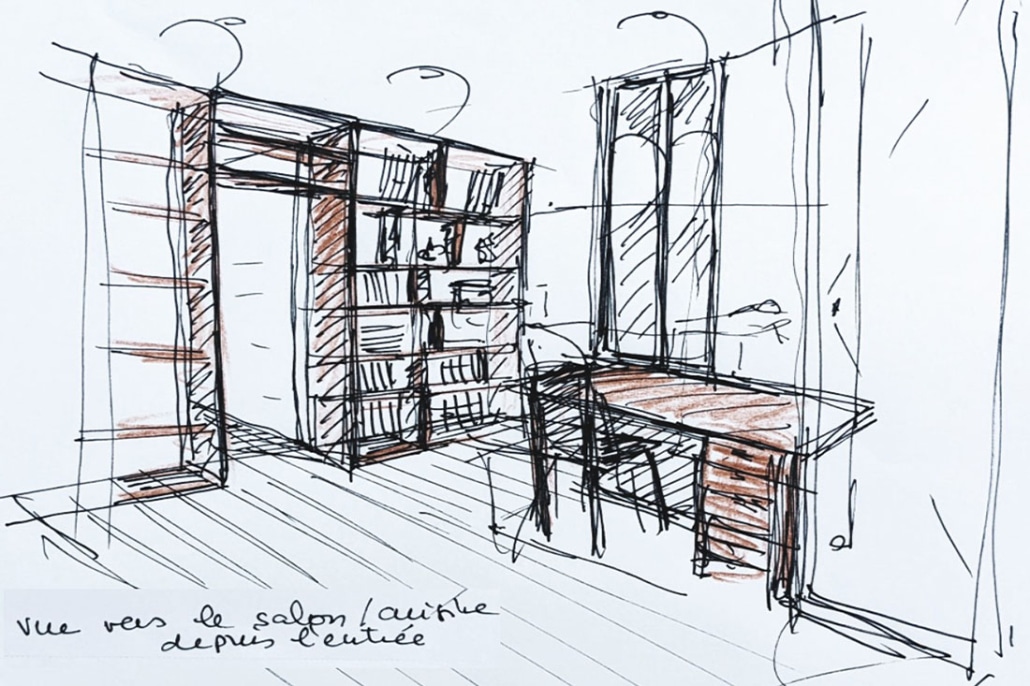 vue vers le salon/cuisine
depuis l'entrée